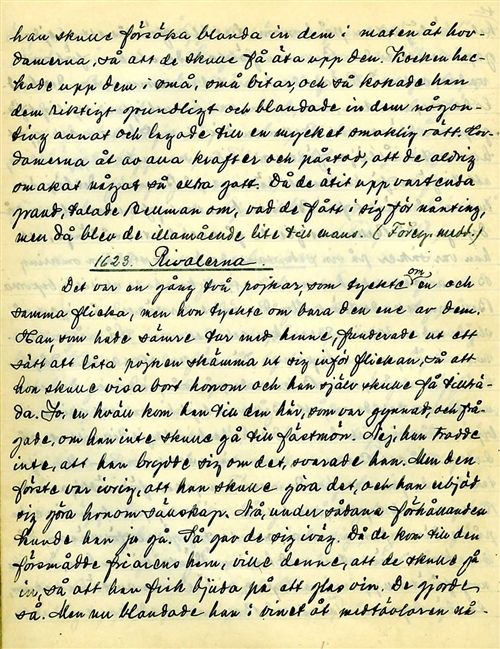 han skulle försöka blanda in dem i maten åt hov-
damerna, så att de skulle få äta upp den. Kocken hac-
kade upp dem i små, små bitar, och så kokade han
dem riktigt grundligt och blandade in dem någon-
ting annat och lagade till en mycket smaklig rätt. Hov-
damerna åt av alla krafter och påstod, att de aldrig
smakat något så extra gott. Då de ätit upp vartenda
grand, talade Bellman om, vad de fått i sig för nånting,
men då blev de illamående lite till mans. (Föreg. medd.)
1623. Rivalerna.
Det var en gång två pojkar, som tyckte om en och
samma flicka, men hon tyckte om bara den ene av dem.
Han, som hade sämre tur med henne, funderade ut ett
sätt att låta pojken skämma ut sig inför flickan, så att
hon skulle visa bort honom och han själv skulle få tillträ-
da. Jo, en kväll kom han till den här, som var gynnad, och frå-
gade, om han inte skulle gå till fästmön. Nej, han trodde
inte, att han brydde sig om det, svarade han. Men den
förste var ivrig, att han skulle göra det, och han erbjöd
sig göra honom sällskap. Nå, under sådana förhållanden
kunde han ju gå. Så gav de sig iväg. Då de kom till den
försmådde friarens hem, ville denne, att de skulle gå
in, så att han fick bjuda på ett glas vin. De gjorde
så. Men nu blandade han i vinet åt medtävlaren nå-